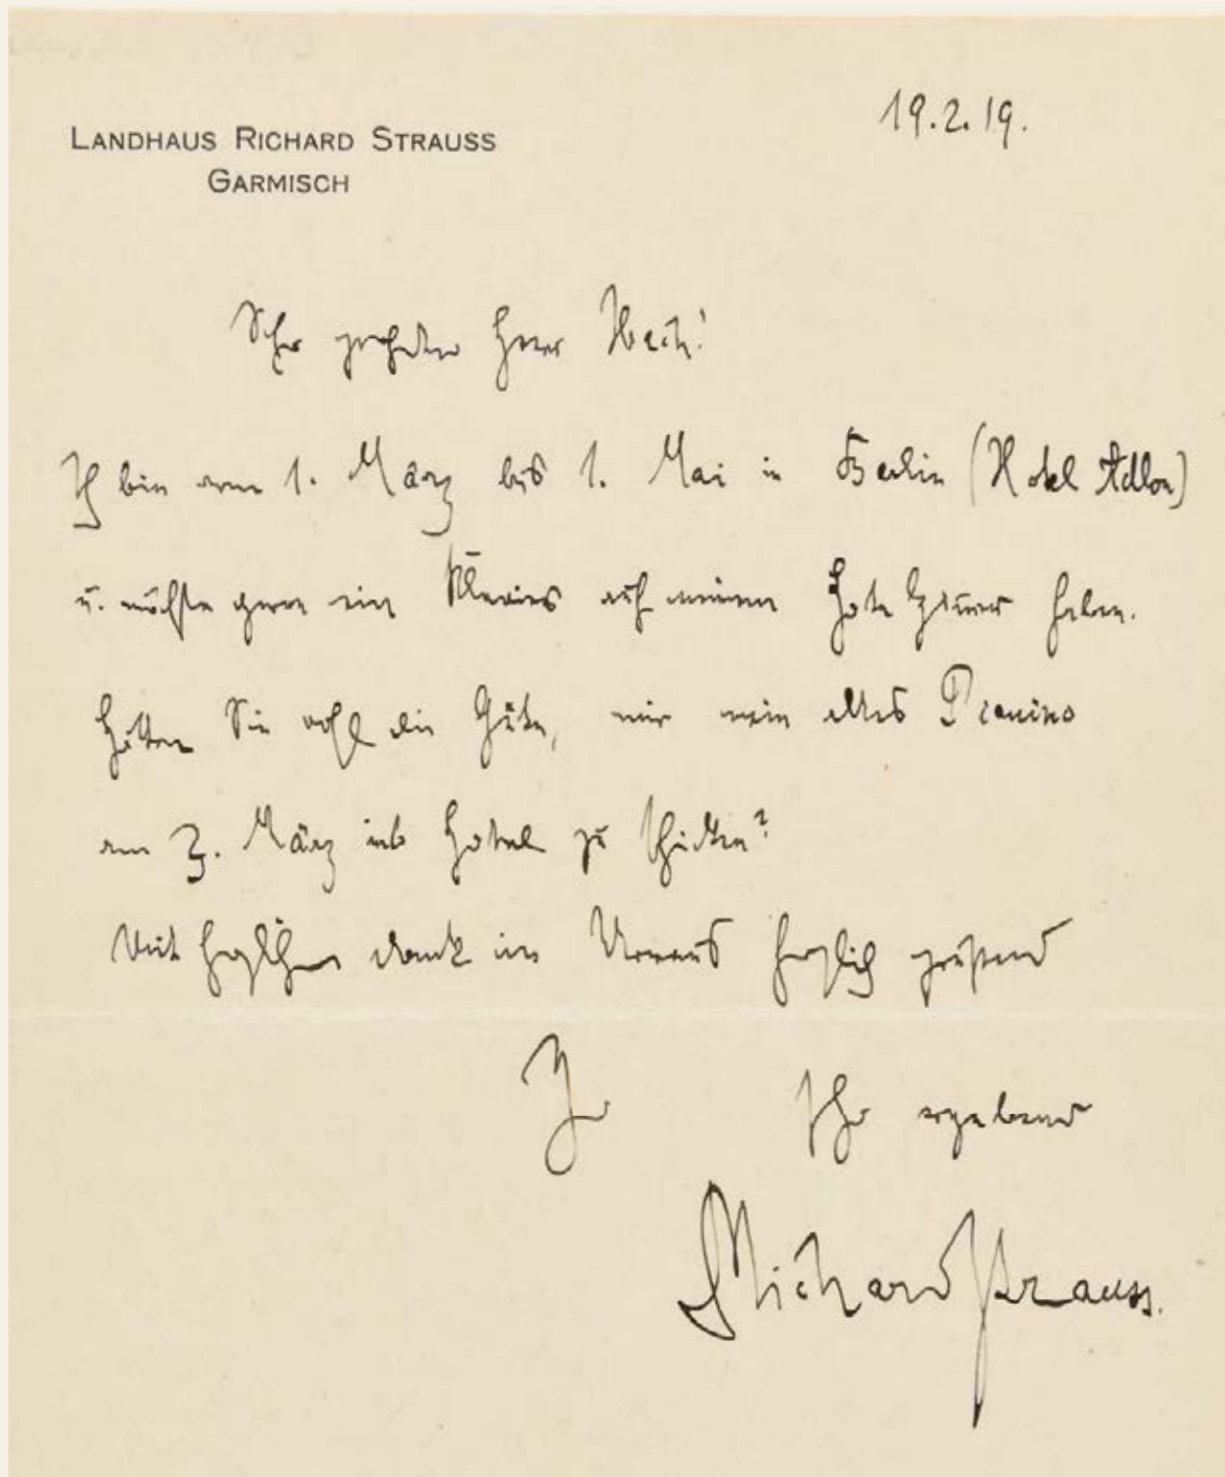 LANDHAUS RICHARD STRAUSS
GARMISCH
19.2.19.
Sehr geehrter Herr
Ich bin vom 1. März bis 1. Mai in Berlin (Hotel Adlon)
u. möchte gern ein Klavier auf meinem Hotelzimmer haben.
Hätten Sie wohl die Güte, mir mein altes Pianino
am 3. März ins Hotel zu schicken?
Mit herzlichem Dank im Voraus herzlich grüßend
Ihr
Ihr ergebener
Richard Strauss.